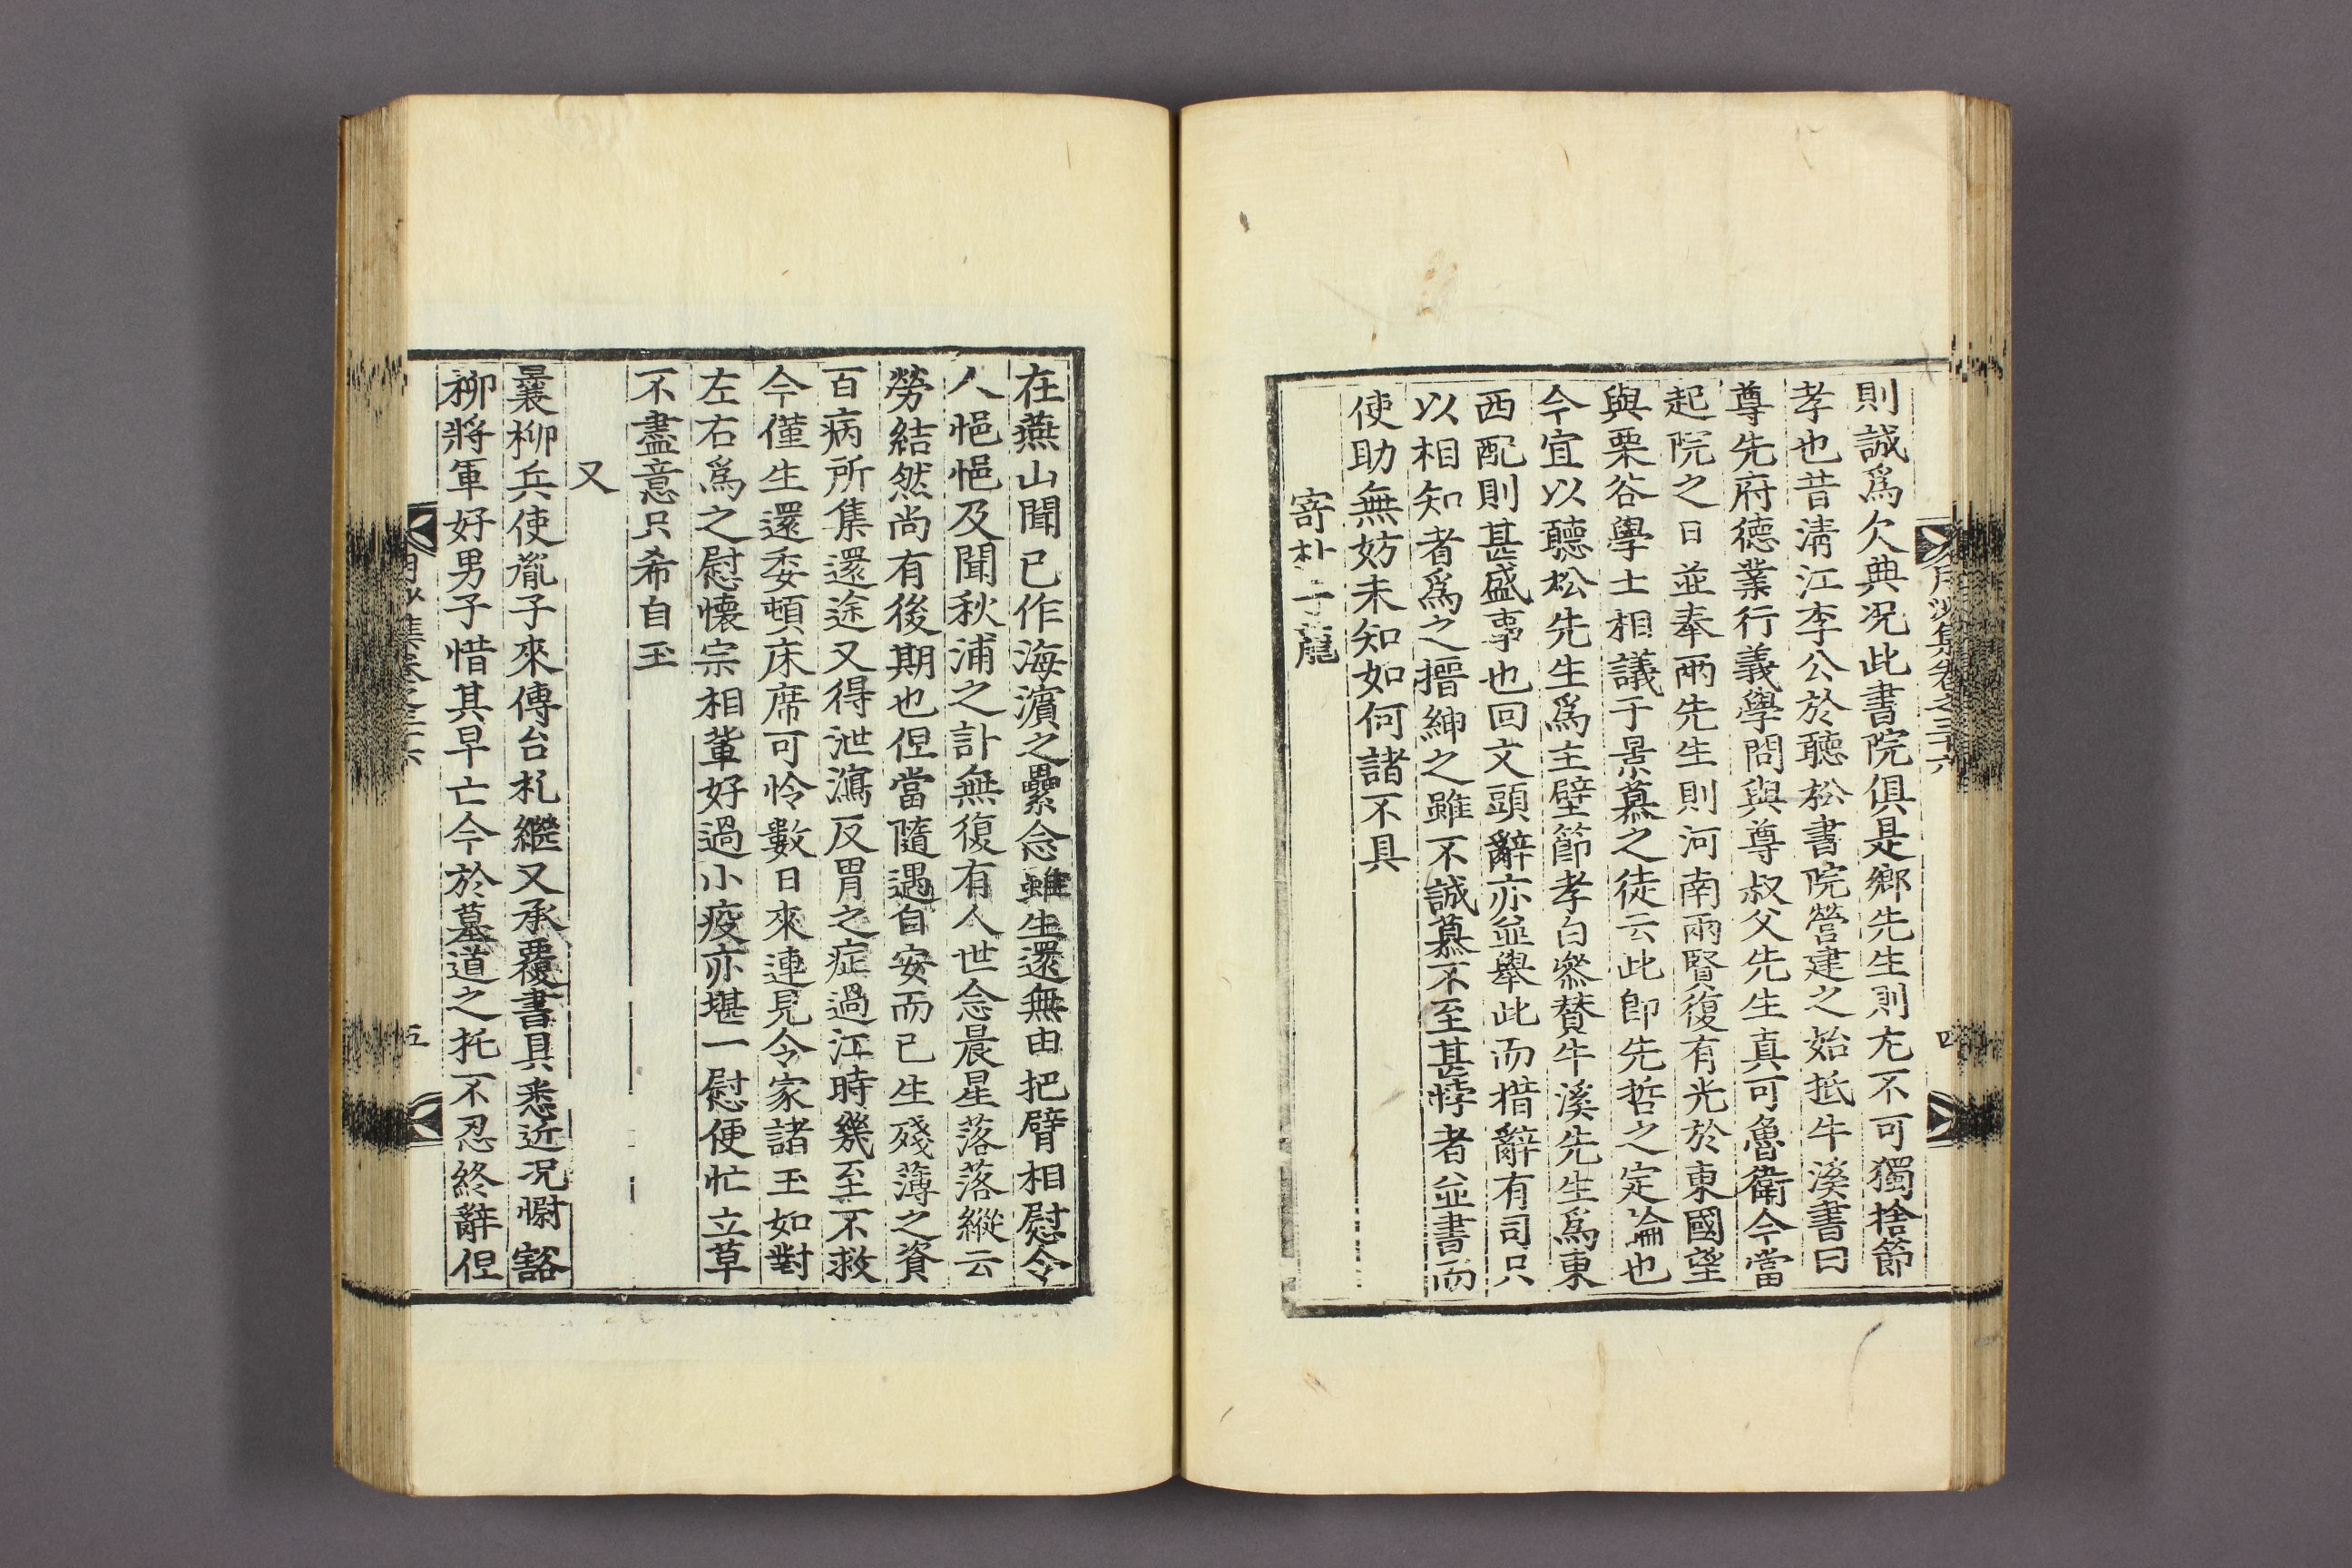 月沙集卷之三十六
四
則誠爲欠典况此書院俱是鄕先生則尢不可獨捨節
孝也昔淸江李公於聽松書院營建之始抵牛溪書曰
尊先府德業行義學問與尊叔父先生真可魯衛今當
起院之日並奉兩先生則河南兩賢復有光於東國望
與栗谷學士相議于景慕之徒云此卽先哲之定論也
今宜以聽松先生爲主壁節孝白叅賛牛溪先生爲東
西配則甚盛事也回文頭辭亦並舉此而措辭有司只
以相知者爲之搢紳之雖不誠慕不至甚悖者並書而
使助無妨未知如何諸不具
寄朴子龍
在燕山聞已作海濵之纍念雖生還無由把臂相慰令
人悒悒及聞秋浦之訃無復有人世念晨星落落縱云
勞結然尚有後期也但當隨遇自安而已生殘薄之資
百病所集還途又得泄瀉反胃之症過江時幾至不救
今僅生還委頓床席可怜數日來連見令家諸玉如對
左右爲之慰懷宗相軰好過小疫亦堪一慰便忙立草
不盡意只希自玉
又
曩柳兵使胤子來傳台札繼又承覆書具悉近况慰豁
柳將軍好男子惜其早亡今於墓道之托不忍終辭但
月沙集卷之三十六
五